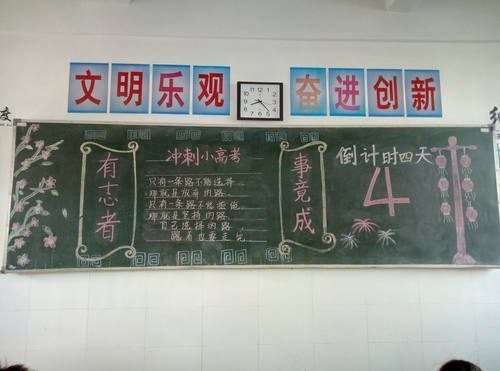 文明乐观
奋进创新
有志者
冲刺小高考
只有一条路不能选择
那就是放弃的路
只有一条路不能拒绝
那就是坚持的路
自己选择的路
跪着也要走完
事竟成
倒计时四天
4